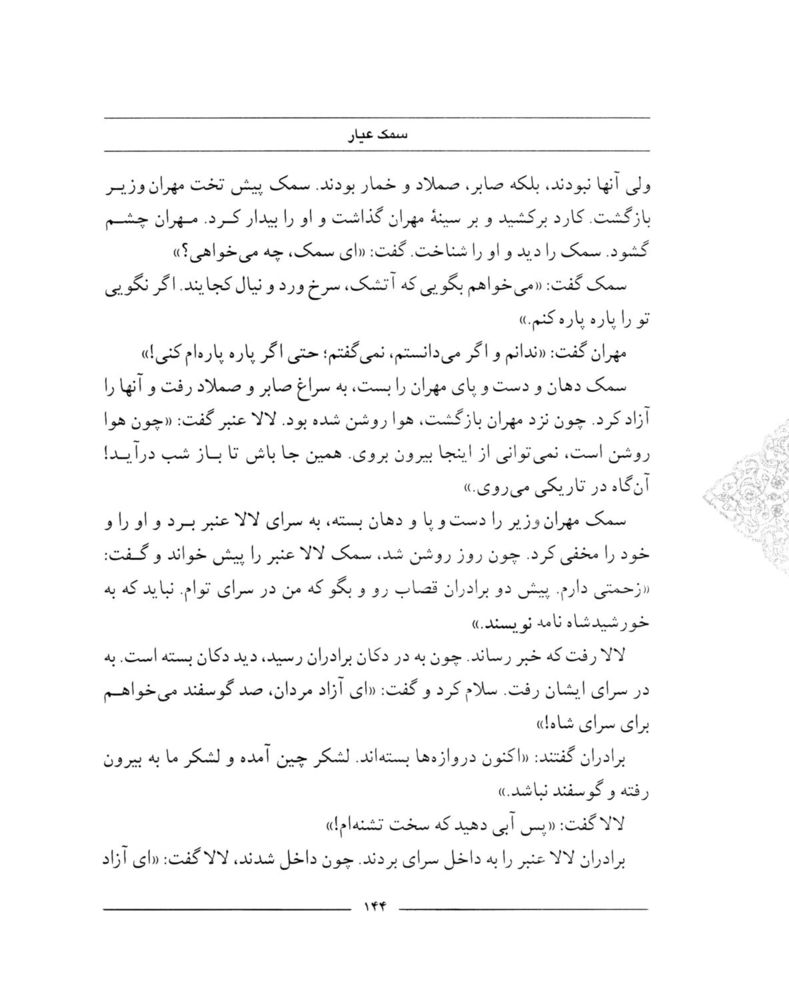 سمک عیار
ولی آنها نبودند، بلکه صابر، صملاد و خمار بودند. سمک پیش تخت مهران وزیر
بازگشت. کارد برکشید و بر سینهٔ مهران گذاشت و او را بیدار کرد. مهران چشم
گشود. سمک را دید و او را شناخت. گفت: «ای سمک، چه می‌خواهی؟»
سمک گفت: «می‌خواهم بگویی که آتشک، سرخ ورد و نیال کجایند. اگر نگویی
تو را پاره پاره کنم.»
مهران گفت: «ندانم و اگر می‌دانستم، نمی‌گفتم؛ حتی اگر پاره پاره‌ام کنی!»
سمک دهان و دست و پای مهران را بست، به سراغ صابر و صملاد رفت و آنها را
آزاد کرد. چون نزد مهران بازگشت، هوا روشن شده بود. لالا عنبر گفت: «چون هوا
روشن است، نمی‌توانی از اینجا بیرون بروی. همین جا باش تا باز شب درآید!
آن‌گاه در تاریکی می‌روی.»
سمک مهران وزیر را دست و پا و دهان بسته، به سرای لالا عنبر برد و او را و
خود را مخفی کرد. چون روز روشن شد، سمک لالا عنبر را پیش خواند و گفت:
«زحمتی دارم. پیش دو برادران قصاب رو و بگو که من در سرای توام. نباید که به
خورشیدشاه نامه نویسند.»
لالا رفت که خبر رساند. چون به در دکان برادران رسید، دید دکان بسته است. به
در سرای ایشان رفت. سلام کرد و گفت: «ای آزاد مردان، صد گوسفند می‌خواهم
برای سرای شاه!»
برادران گفتند: «اکنون دروازه‌ها بسته‌اند. لشکر چین آمده و لشکر ما به بیرون
رفته و گوسفند نباشد.»
لالا گفت: «پس آبی دهید که سخت تشنه‌ام!»
برادران لالا عنبر را به داخل سرای بردند. چون داخل شدند، لالا گفت: «ای آزاد
۱۴۴